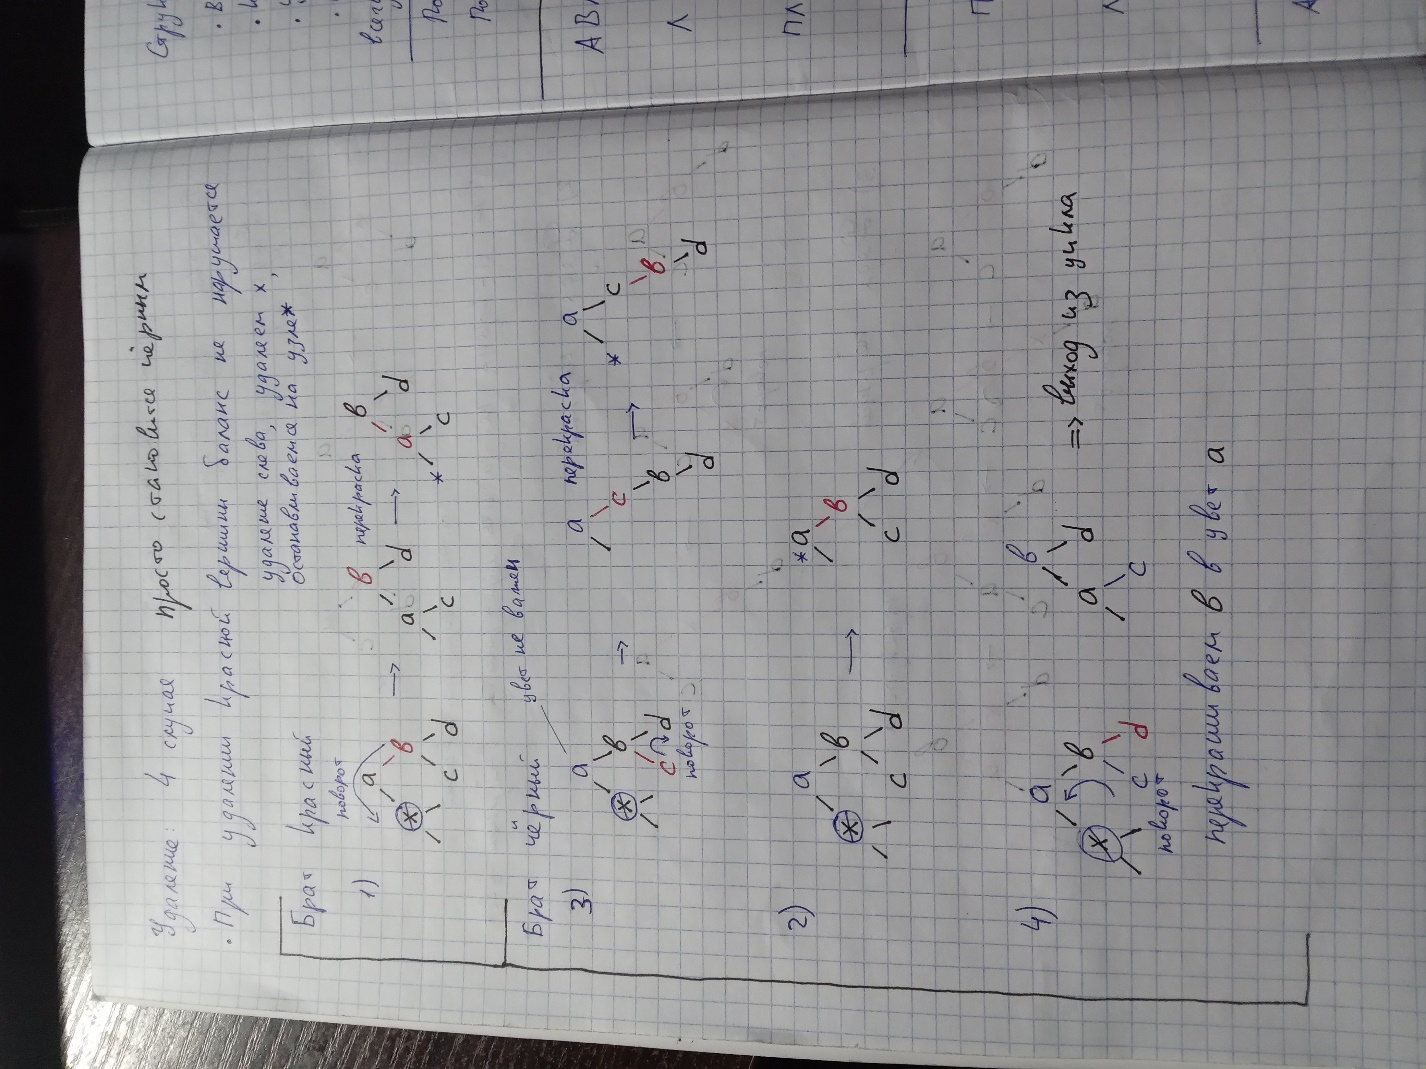 Удаление: 4 случая просто становится чёрным
• При удалении красной вершины баланс не нарушается
удаление слева, удаляем x,
останавливаемся на узле *
Брат красный
1) поворот
a в x c d
→
в a d c
перекраска
→
в a d * c
Брат чёрный
цвет не важен
3) a x в c d
поворот
→
a c в d
перекраска
→
a * c в d
2) a x в c d
→
* a в c d
4) a x в c d
поворот
в a d c
=> выход из цикла
перекрашиваем в в цвет a
Стру
• В
всег
АВ
Л
ПЛ
П
Л
А